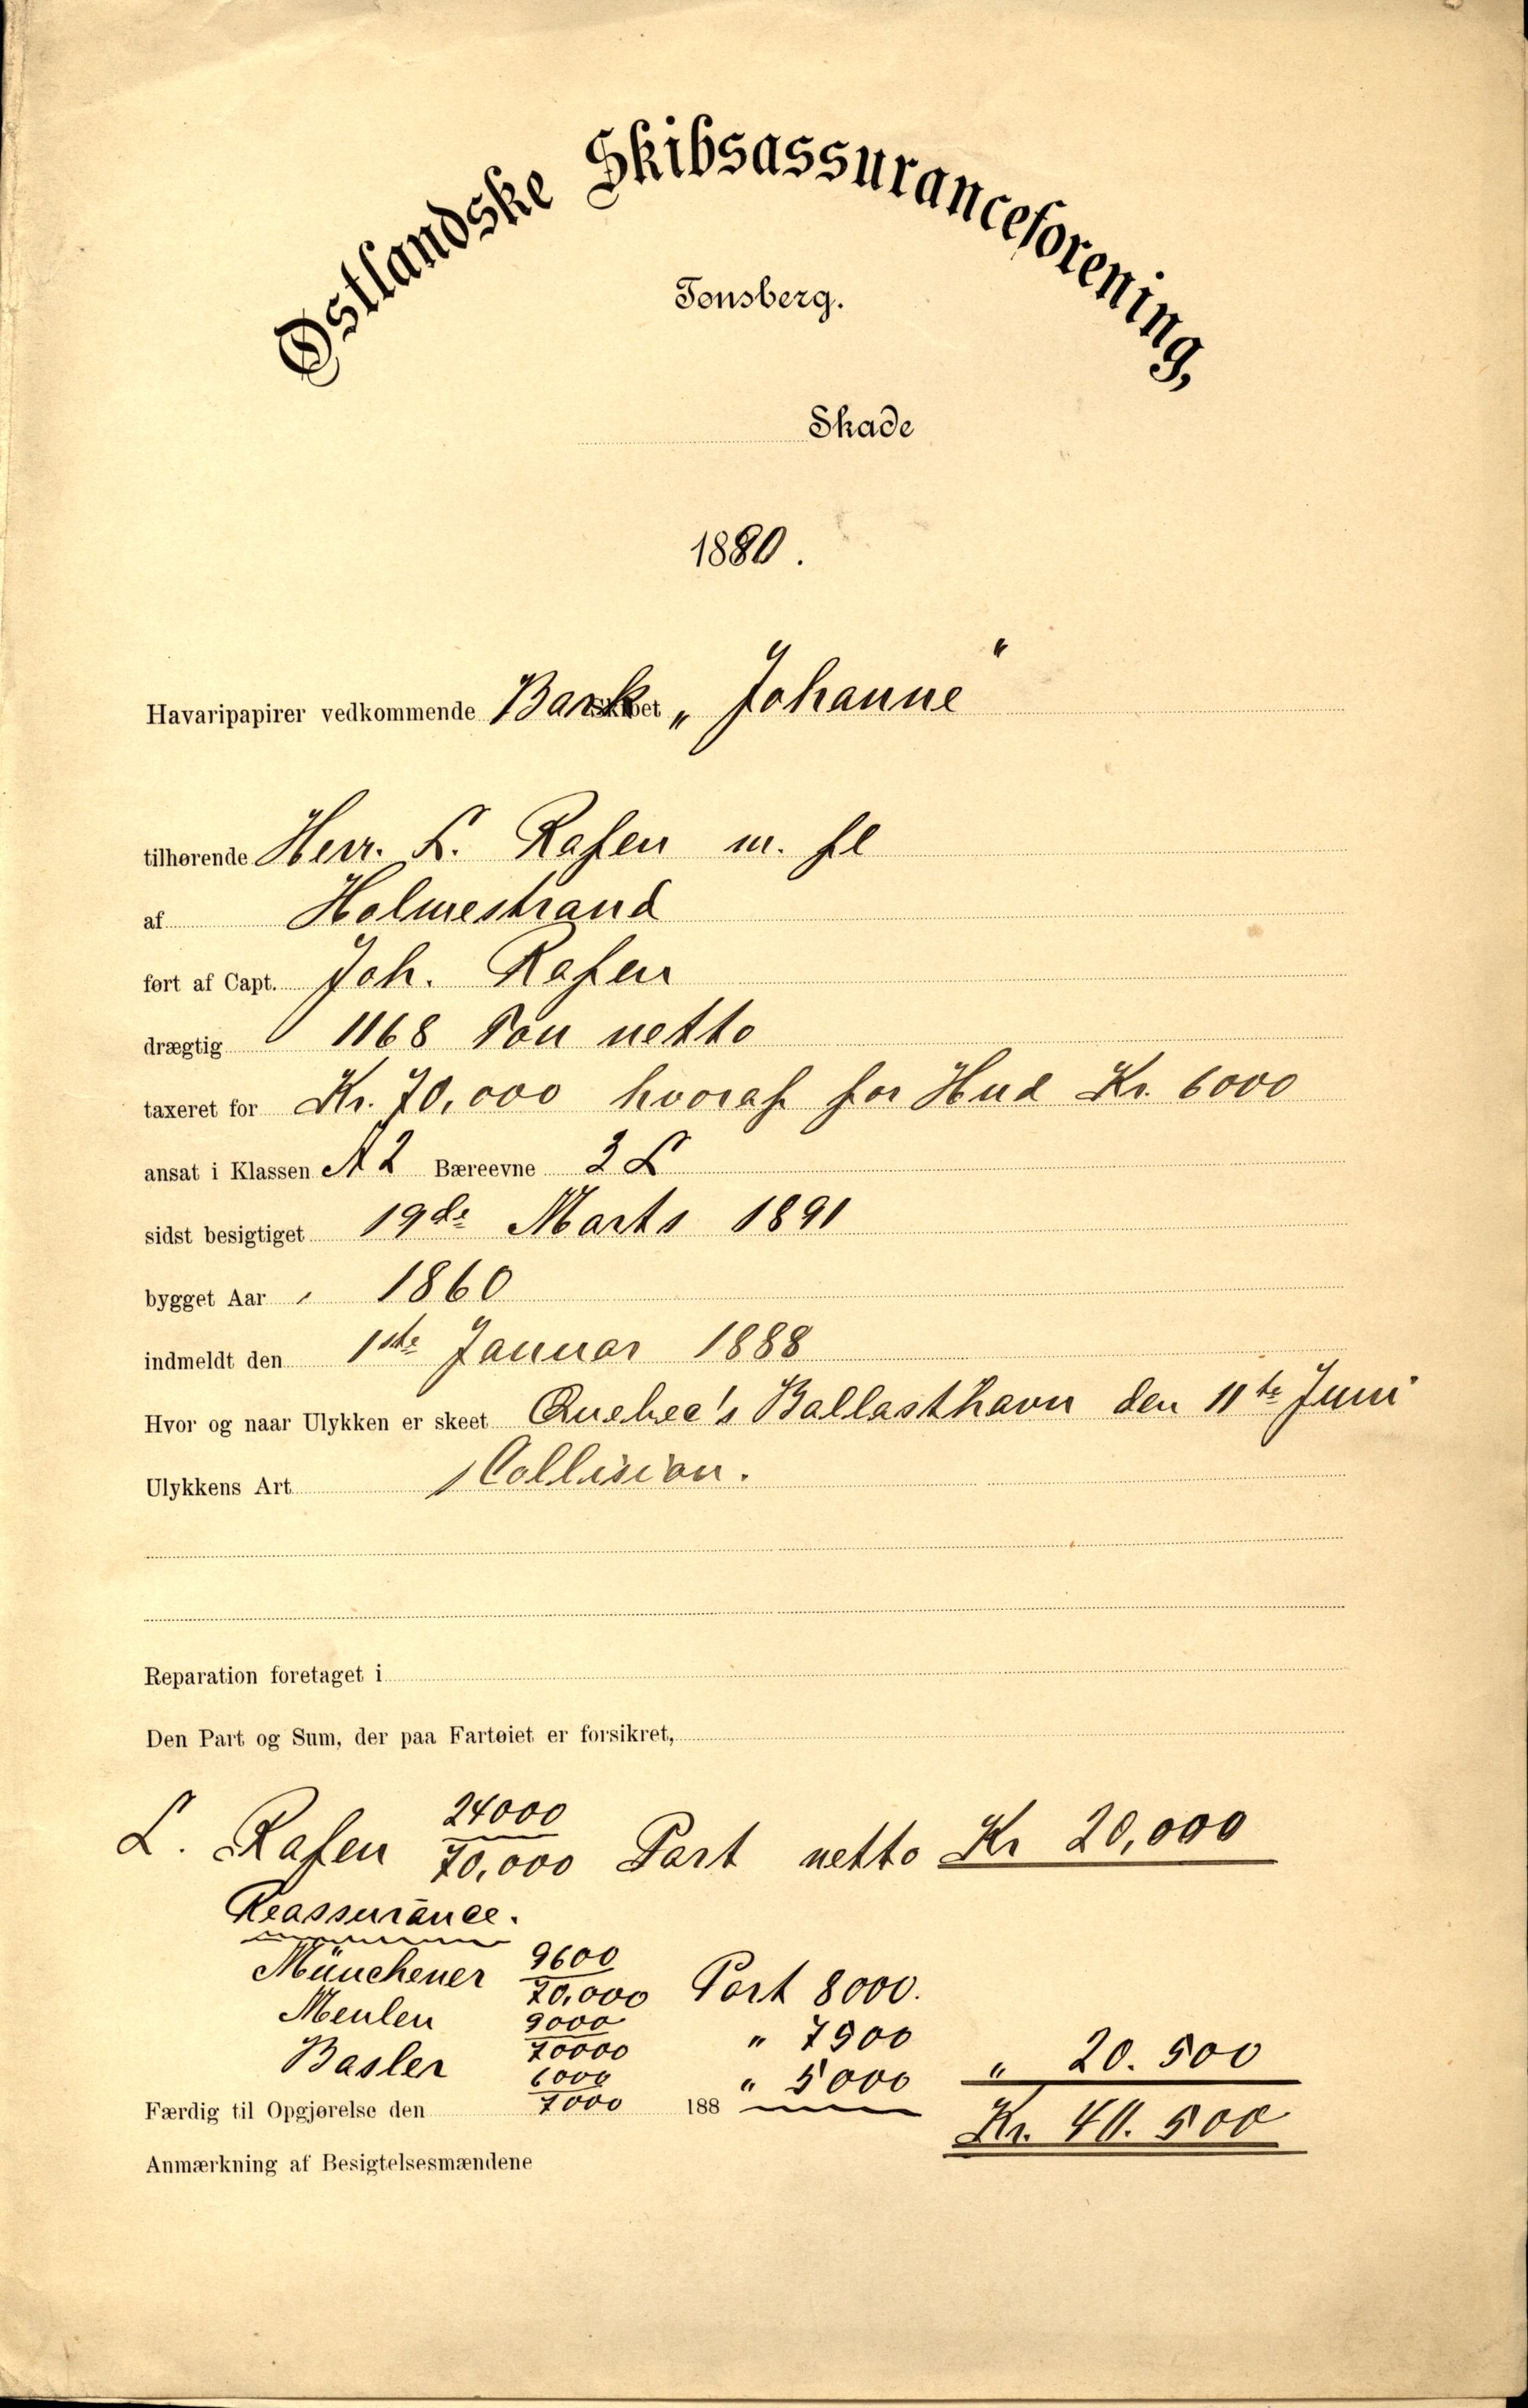 Østlandske Skibsassuranceforening,
Tønsberg.
Skade
1890.
Havaripapirer vedkommende Bark skibet „Johanne"
tilhørende Herr. L. Rafen m. fl
af Holmestrand
ført af Capt. Joh. Rafen
drægtig 1168 Ton netto
taxeret for Kr. 70,000 hvoraf for Hud Kr. 6000
ansat i Klassen A 2 Bæreevne 3 L
sidst besigtiget 19de Marts 1891
bygget Aar 1860
indmeldt den 1ste Januar 1888
Hvor og naar Ulykken er skeet Quebec's Ballasthavn den 11te Juni
Ulykkens Art Collision.
Reparation foretaget i
Den Part og Sum, der paa Fartøiet er forsikret,
L. Rafen 24000/70,000 Part netto Kr 20,000
Reassurance.
Münchener 9600/70,000 Part 8000.
Meulen 9000/70000 " 7500
Basler 6000/7000 " 5000 " 20.500
Færdig til Opgjørelse den 188 Kr. 40.500
Anmærkning af Besigtelsesmændene